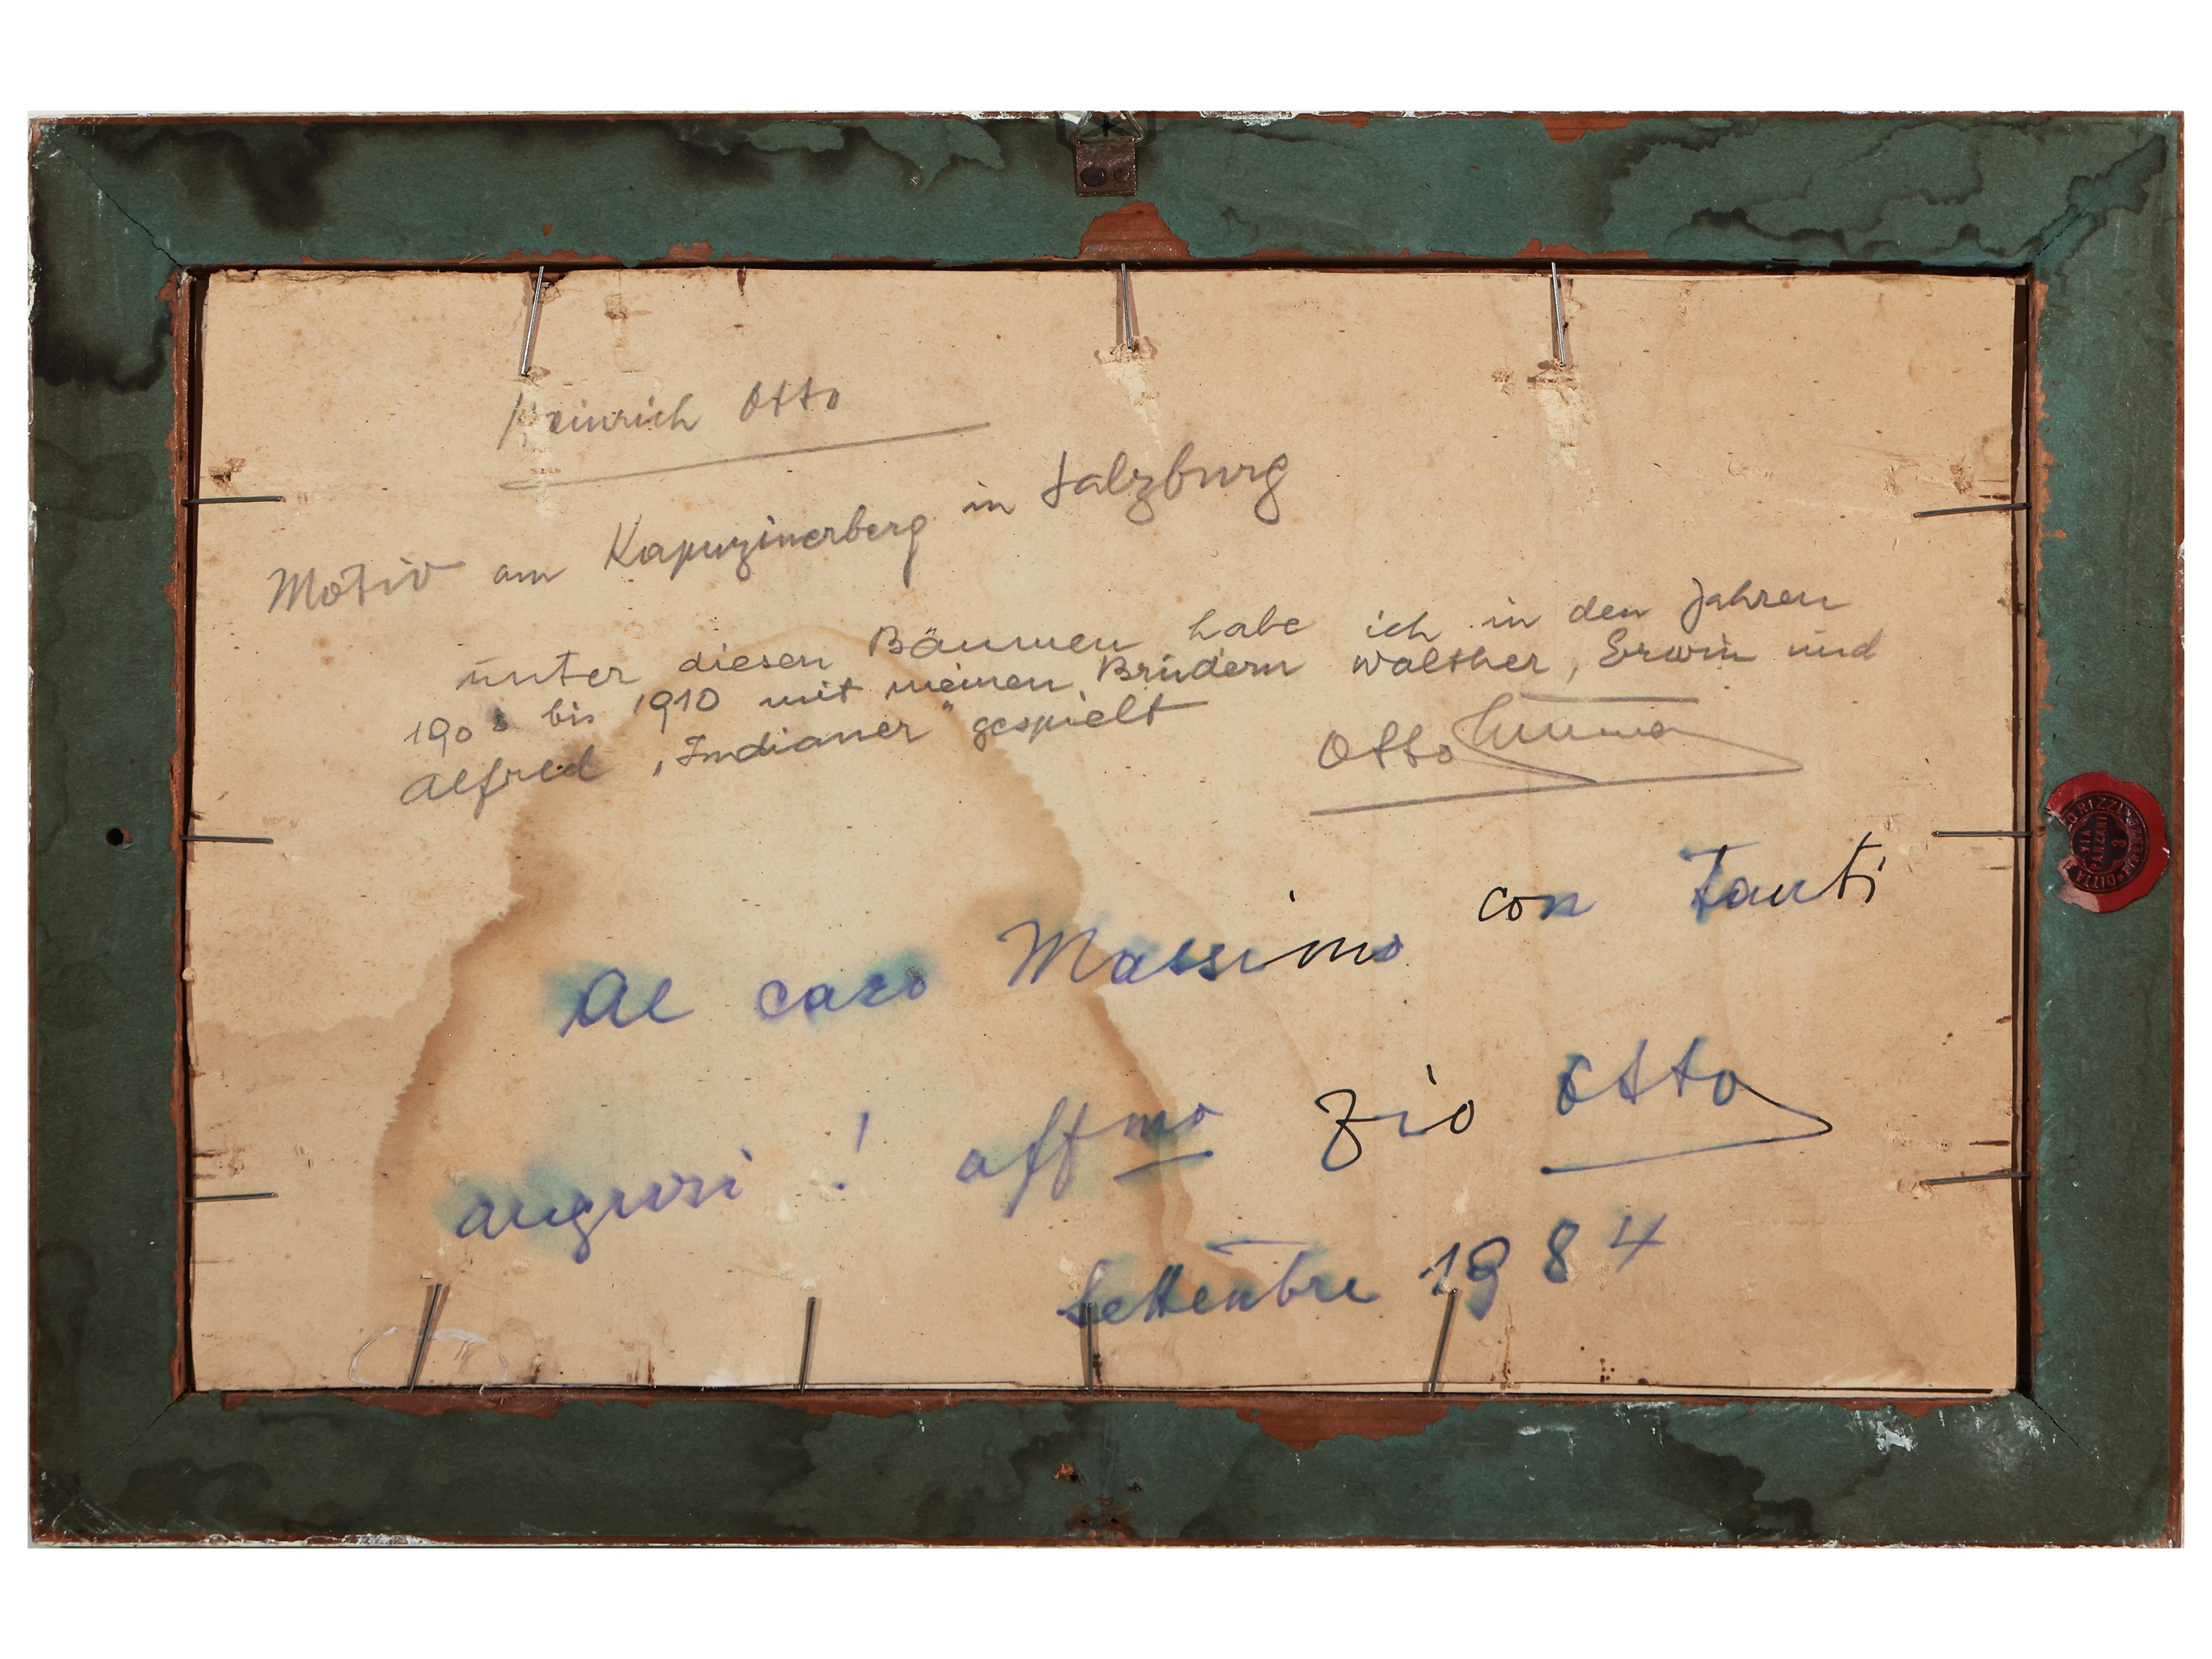 Heinrich Otto
Motiv am Kapuzinerberg in Salzburg
unter diesen Bäumen habe ich in den Jahren
1908 bis 1910 mit meinen Brüdern Walther, Erwin und
Alfred „Indianer" gespielt
Otto
Al caro Massimo con tanti
auguri! affmo zio Otto
Settembre 1984
RIZZI FIRENZE DITTA
VIA
PANZANI
8